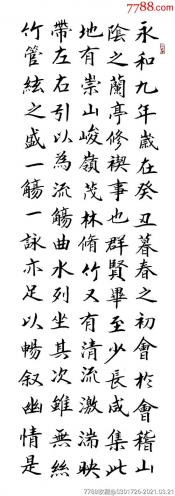 7788.com
永和九年歲在癸丑暮春之初會於會稽山
陰之蘭亭修禊事也群賢畢至少長咸集此
地有崇山峻嶺茂林脩竹又有清流激湍映
帶左右引以為流觴曲水列坐其次雖無絲
竹管絃之盛一觴一詠亦足以暢叙幽情是
7788收藏@0301726-2021.03.21